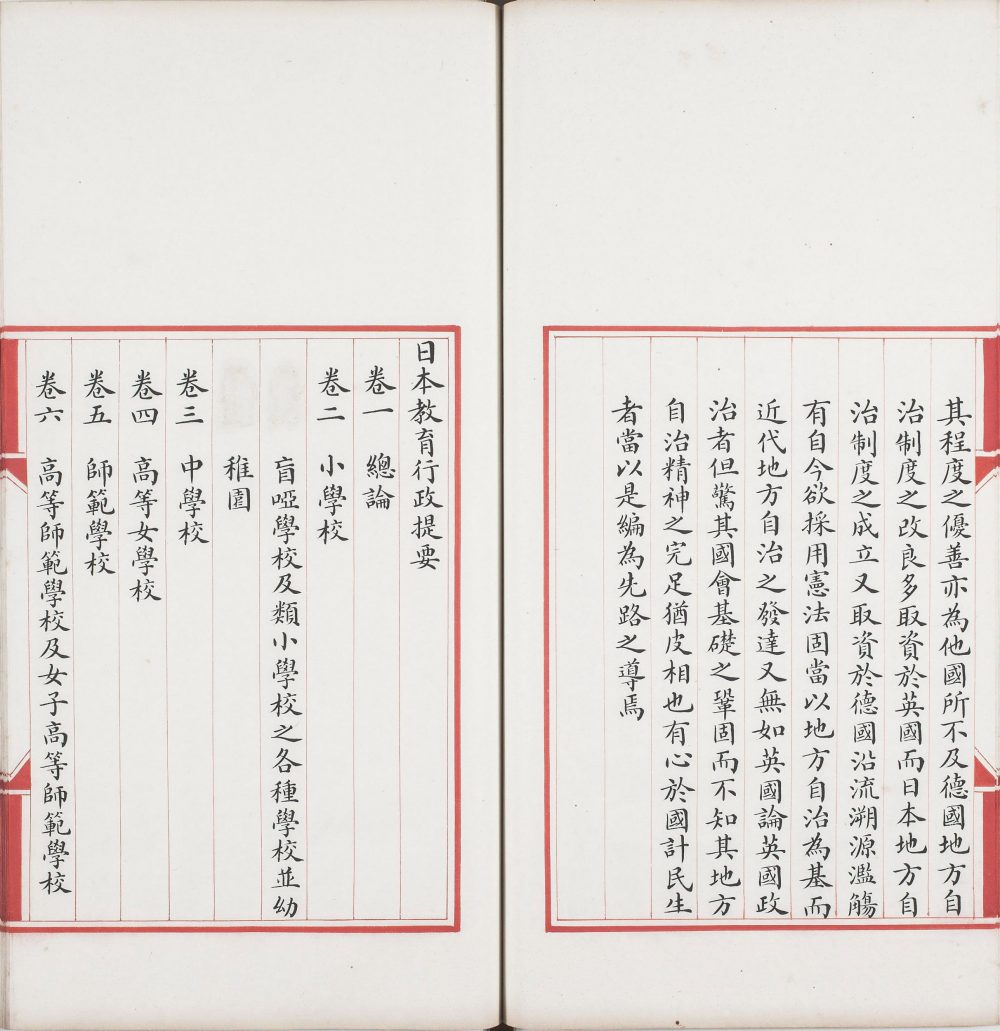 其程度之優善亦為他國所不及德國地方自
治制度之改良多取資於英國而日本地方自
治制度之成立又取資於德國沿流溯源濫觴
有自今欲採用憲法固當以地方自治為基而
近代地方自治之發達又無如英國論英國政
治者但驚其國會基礎之鞏固而不知其地方
自治精神之完足猶皮相也有心於國計民生
者當以是編為先路之導焉
日本教育行政提要
卷一　總論
卷二　小學校
盲啞學校及類小學校之各種學校並幼
稚園
卷三　中學校
卷四　高等女學校
卷五　師範學校
卷六　高等師範學校及女子高等師範學校